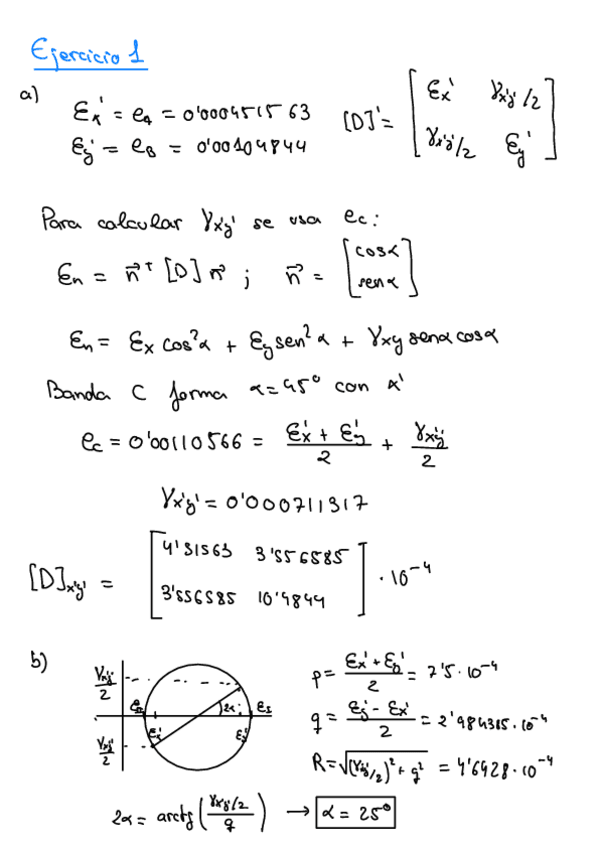 Ejercicio 1
a)
εx' = eA = 0'000451563
εy' = eB = 0'00104844
[D]' = [ εx' γx'y'/2
γx'y'/2 εy' ]
Para calcular γx'y' se usa ec:
εn = n⃗ᵀ [D] n⃗ ; n⃗ = [ cosα
senα ]
εn = εx cos²α + εy sen²α + γxy senα cosα
Banda C forma α=45° con x'
ec = 0'00110566 = (εx' + εy')/2 + γx'y'/2
γx'y' = 0'000711317
[D]x'y' = [ 4'51563 3'556585
3'556585 10'4844 ] · 10⁻⁴
b)
γx'y'/2
eII εx' 2α εy' eI
γx'y'/2
p = (εx' + εy')/2 = 7'5·10⁻⁴
q = (εy' - εx')/2 = 2'984385·10⁻⁴
R = √((γx'y'/2)² + q²) = 4'6428·10⁻⁴
2α = arctg ( (γx'y'/2)/q ) → α = 25°